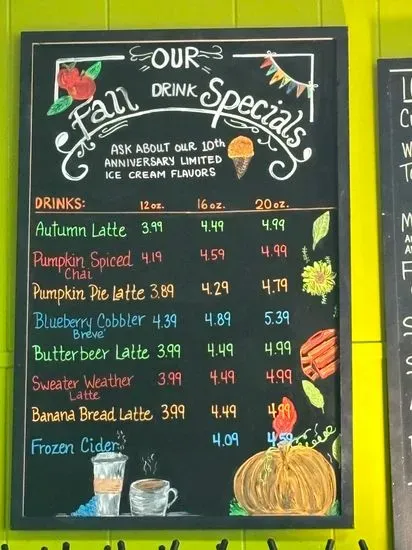 OUR
DRINK
Fall Specials
ASK ABOUT OUR 10th
ANNIVERSARY LIMITED
ICE CREAM FLAVORS
DRINKS: 12 oz. 16 oz. 20 oz.
Autumn Latte 3.99 4.49 4.99
Pumpkin Spiced 4.19 4.59 4.99
Chai
Pumpkin Pie Latte 3.89 4.29 4.79
Blueberry Cobbler 4.39 4.89 5.39
Breve
Butterbeer Latte 3.99 4.49 4.99
Sweater Weather 3.99 4.49 4.99
Latte
Banana Bread Latte 3.99 4.49 4.99
Frozen Cider 4.09 4.59